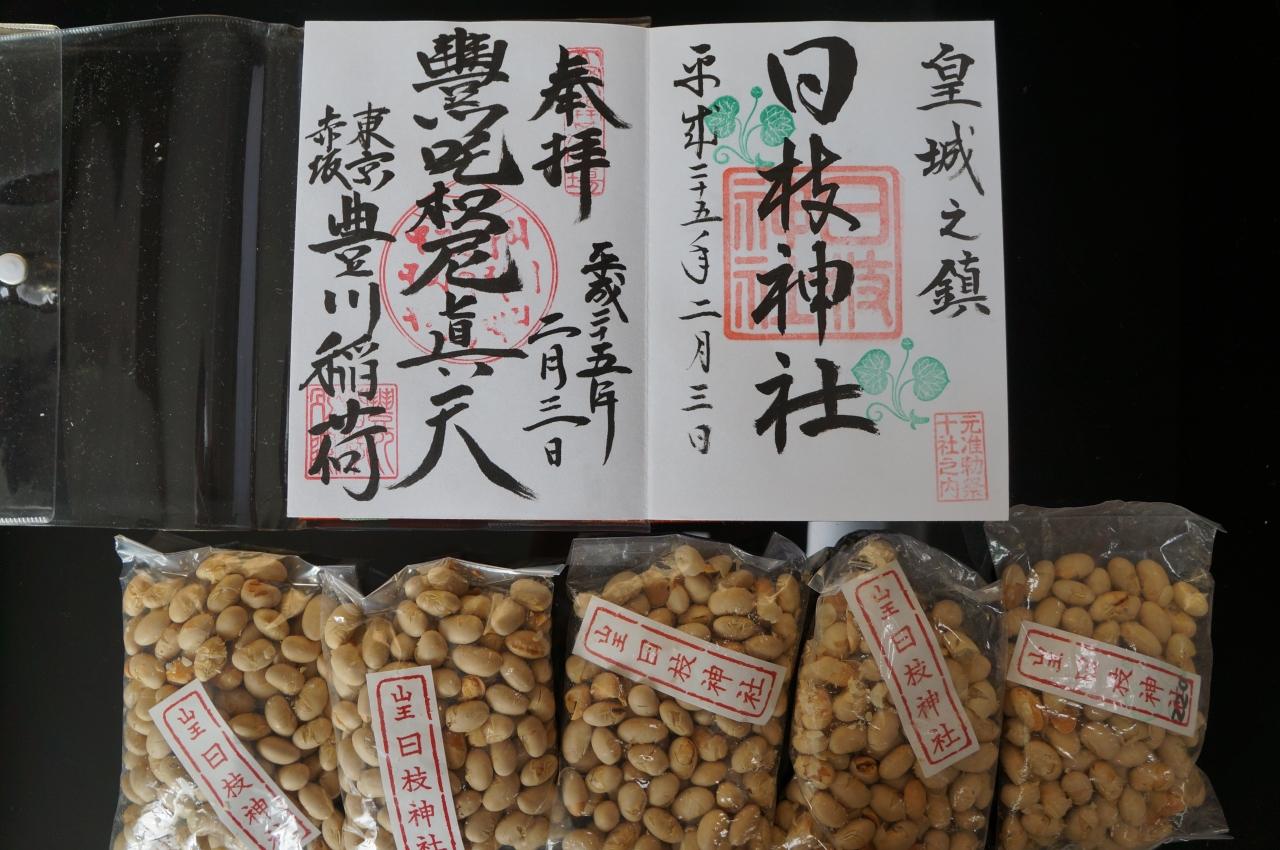 皇城之鎮
日枝神社
日枝神社
平成二十五年二月三日
元准勅祭
十社之内
奉拝
平成二十五年
二月三日
豐川吒枳尼眞天
東京
赤坂
豊川稲荷
山王日枝神社
山王日枝神社
山王日枝神社
山王日枝神社
山王日枝神社